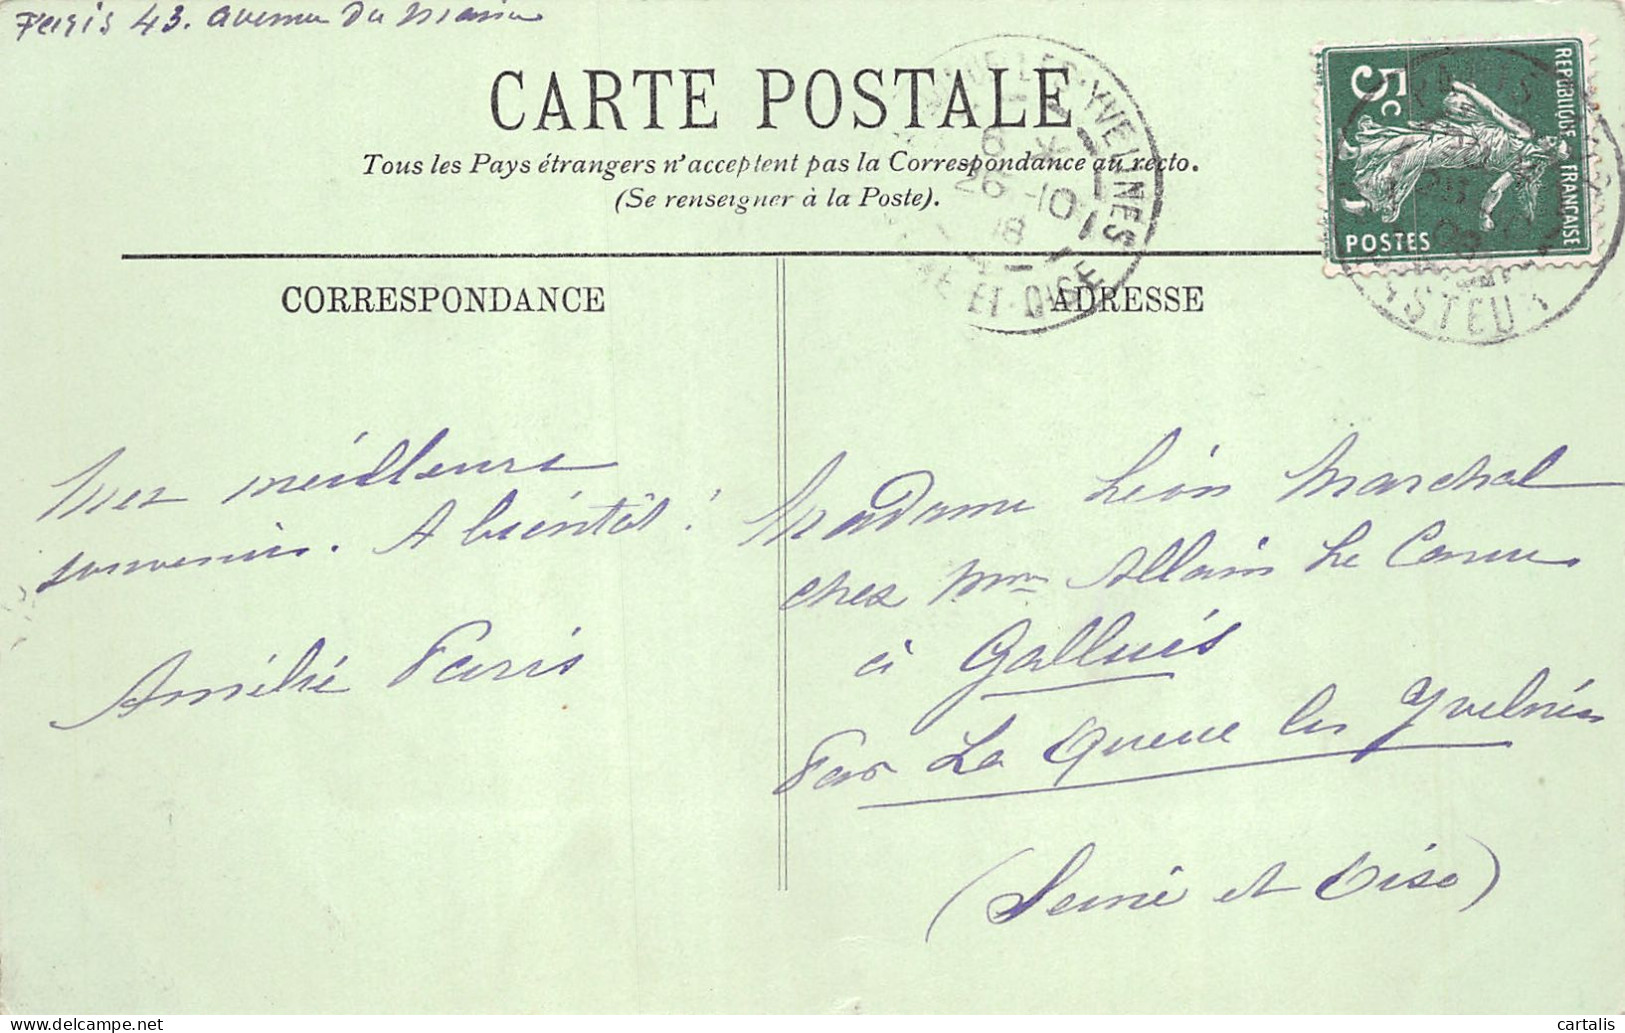 Paris 43. avenue du Maine
CARTE POSTALE
Tous les Pays étrangers n'acceptent pas la Correspondance au recto.
(Se renseigner à la Poste).
LES-YVELINES
6
26 -10
ET-OISE
REPUBLIQUE FRANÇAISE
5c
POSTES
CORRESPONDANCE
ADRESSE
Mes meilleurs
souvenirs. A bientôt!
Amélie Paris
Madame Léon Marchal
chez Mme Allain Le
à Galluis
Par La Queue les Yvelines
(Seine et Oise)
cartalis